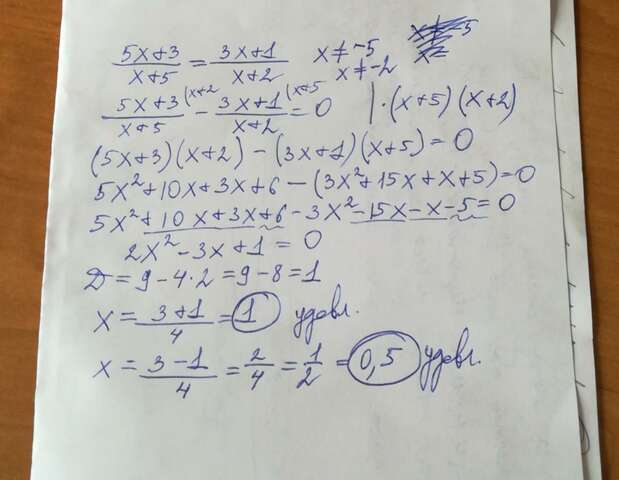 (5x+3)/(x+5) = (3x+1)/(x+2) x≠-5
x≠-2
(5x+3)/(x+5) (x+2 - (3x+1)/(x+2) (x+5 = 0 | · (x+5)(x+2)
(5x+3)(x+2) - (3x+1)(x+5) = 0
5x²+10x+3x+6 - (3x²+15x+x+5) = 0
5x²+10x+3x+6-3x²-15x-x-5=0
2x²-3x+1 = 0
D = 9-4·2 = 9-8 = 1
x = (3+1)/4 = 1 удовл.
x = (3-1)/4 = 2/4 = 1/2 = 0,5 удовл.